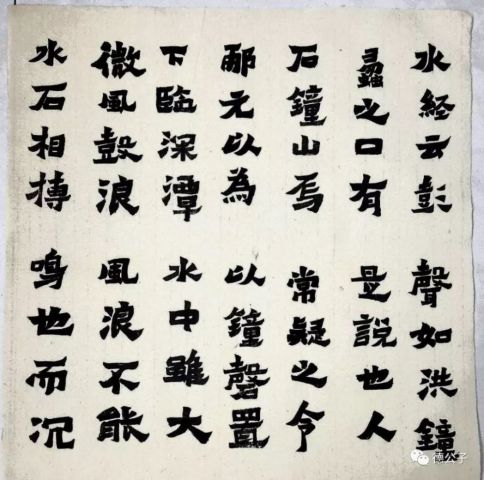 水経云彭
蠡之口有
石鐘山焉
酈元以為
下臨深潭
微風鼓浪
水石相搏
聲如洪鐘
是說也人
常疑之今
以鐘磬置
水中雖大
風浪不能
鳴也而況
德公子